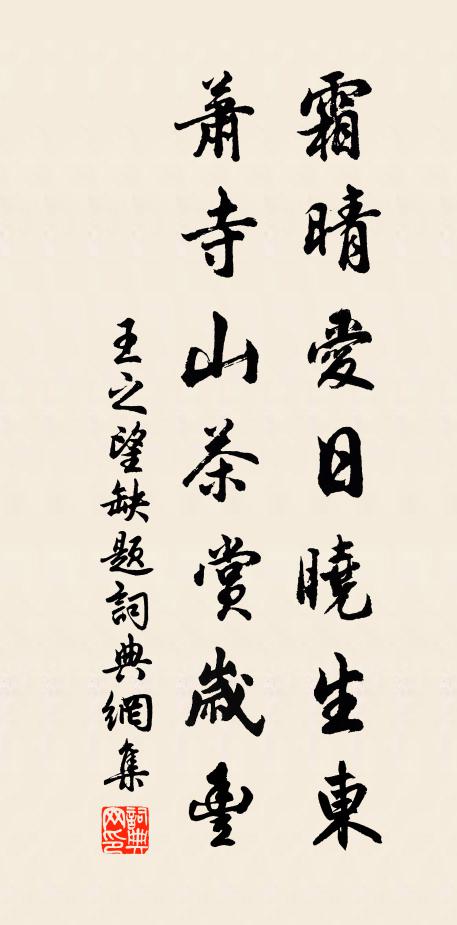 霜晴愛日曉生東
蕭寺山茶賞歲豐
王之望缺題詞典網集
詞典网印